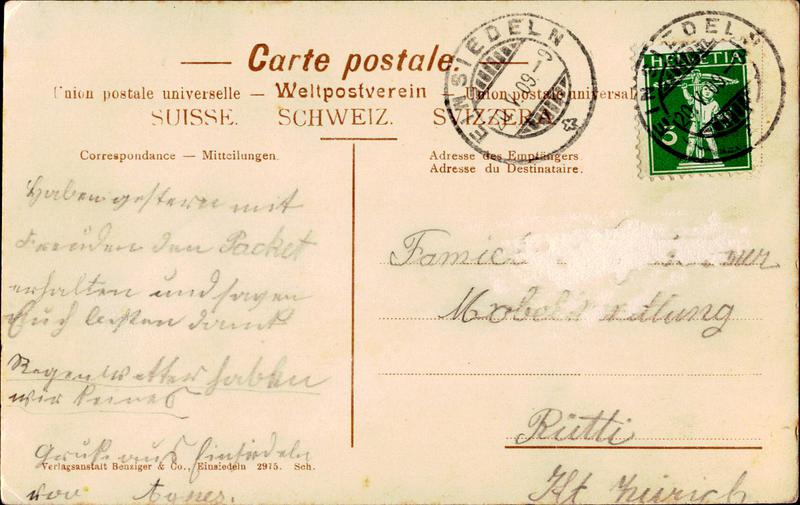 Carte postale.
Union postale universelle — Weltpostverein — Union postale universale
SUISSE. SCHWEIZ. SVIZZERA.
EINSIEDELN
EINSIEDELN
HELVETIA
5
Correspondance — Mitteilungen.
Adresse des Empfängers
Adresse du Destinataire.
Haben gestern mit
Freuden den Packet
erhalten und sagen
Euch besten Dank
Regenwetter haben
wir keines
Gruss aus Einsiedeln
von Agnes.
Rütti
Kt. Zürich
Verlagsanstalt Benziger & Co., Einsiedeln 2975. Sch.